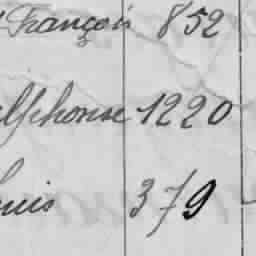 François 852
Alphonse 1220
Louis 379